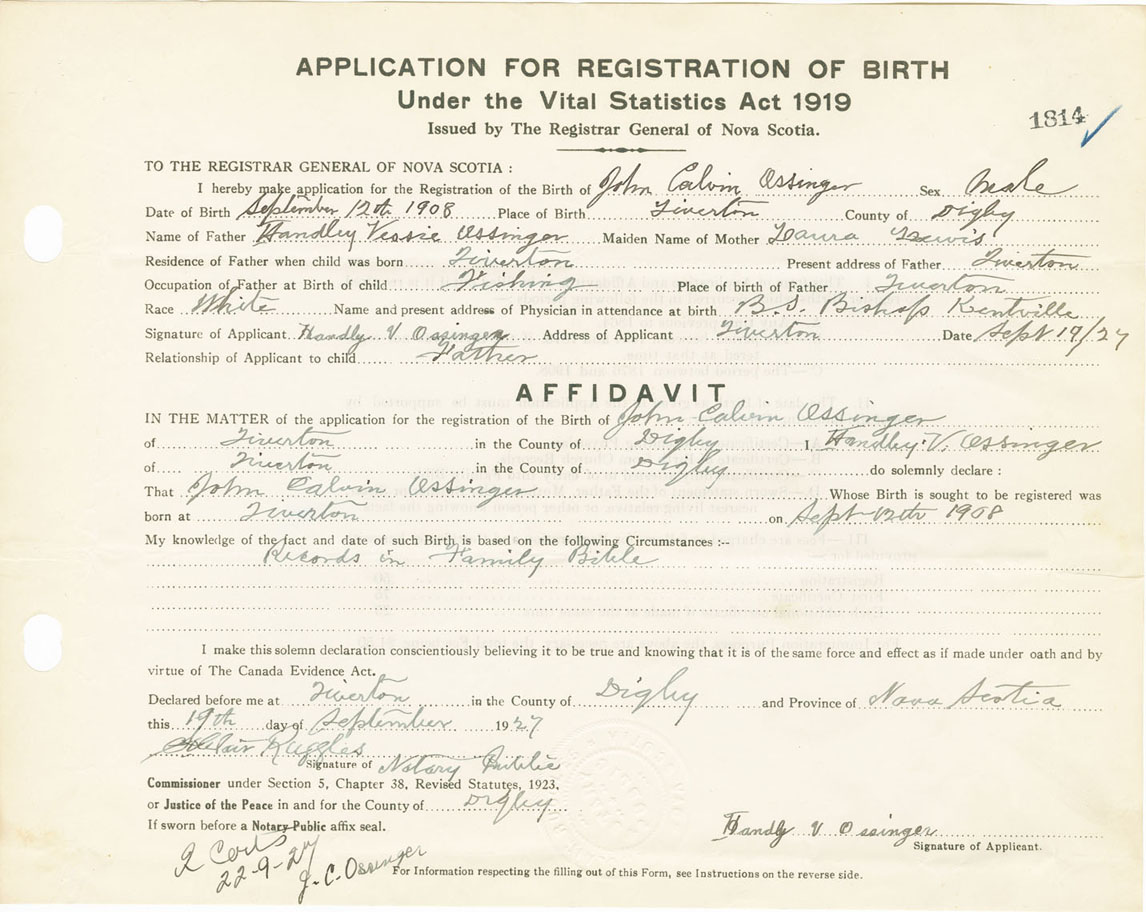 APPLICATION FOR REGISTRATION OF BIRTH
Under the Vital Statistics Act 1919
Issued by The Registrar General of Nova Scotia.
1814
TO THE REGISTRAR GENERAL OF NOVA SCOTIA :
I hereby make application for the Registration of the Birth of John Calvin Ossinger Sex Male
Date of Birth September 12th 1908 Place of Birth Tiverton County of Digby
Name of Father Handley Vessie Ossinger Maiden Name of Mother Laura Lewis
Residence of Father when child was born Tiverton Present address of Father Tiverton
Occupation of Father at Birth of child Fishing Place of birth of Father Tiverton
Race White Name and present address of Physician in attendance at birth B.S. Bishop Kentville
Signature of Applicant Handly V Ossinger Address of Applicant Tiverton Date Sept 19/27
Relationship of Applicant to child Father
AFFIDAVIT
IN THE MATTER of the application for the registration of the Birth of John Calvin Ossinger
of Tiverton in the County of Digby I, Handley V. Ossinger
of Tiverton in the County of Digby do solemnly declare :
That John Calvin Ossinger Whose Birth is sought to be registered was
born at Tiverton on Sept 12th 1908
My knowledge of the fact and date of such Birth is based on the following Circumstances :--
Records in Family Bible
I make this solemn declaration conscientiously believing it to be true and knowing that it is of the same force and effect as if made under oath and by
virtue of The Canada Evidence Act.
Declared before me at Tiverton in the County of Digby and Province of Nova Scotia
this 19th day of September 1927
Ruggles
Signature of Notary Public
Commissioner under Section 5, Chapter 38, Revised Statutes, 1923,
or Justice of the Peace in and for the County of Digby
If sworn before a Notary Public affix seal.
Handly V Ossinger
Signature of Applicant.
2 Certs
22-9-27
J. C. Ossinger
For Information respecting the filling out of this Form, see Instructions on the reverse side.